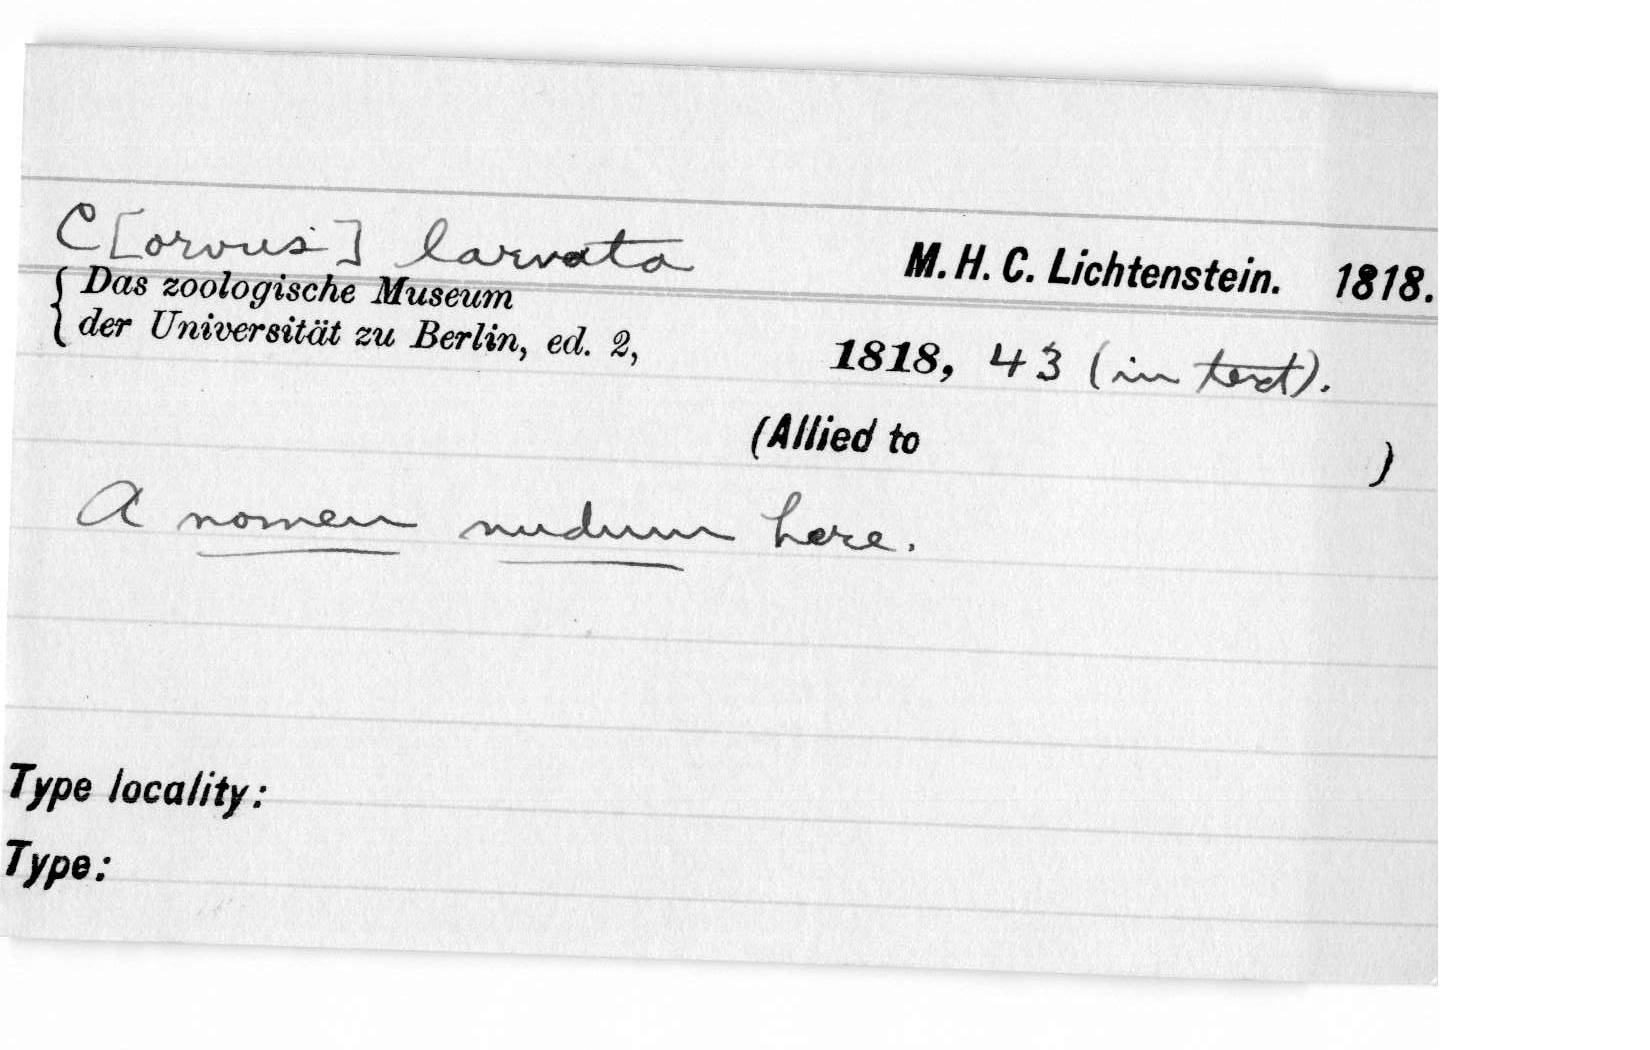 C[orvus] larvata M. H. C. Lichtenstein. 1818.
{ Das zoologische Museum
der Universität zu Berlin, ed. 2, 1818, 43 (in text).
(Allied to )
A nomen nudum here.
Type locality:
Type: